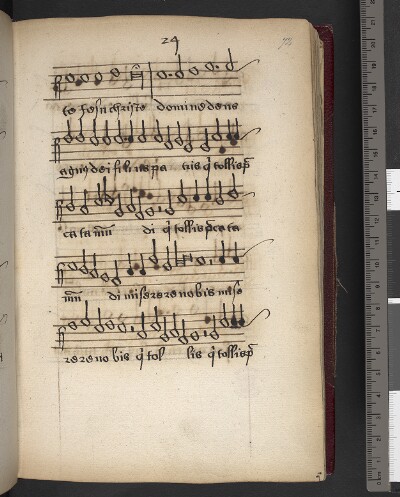 24
te Jesu christe domine deus
agnus dei filius pa tris q tollis p
ca ta mu di q tollis pca ta
mu di miserere nobis mise
rere no bis q tol lis q tollis p